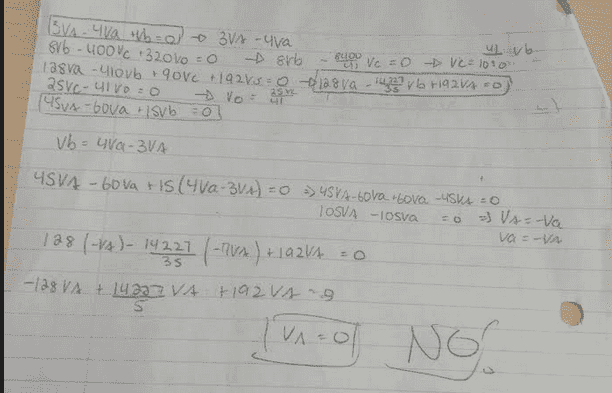 3VA - 4Va + Vb = 0 → 3VA - 4Va
8Vb - 400Vc + 320Vo = 0 → 8Vb - 8400/41 Vc = 0 → Vc = Vb
128Va - 410Vb + 90Vc + 192Vs = 0 → 128Va - 14227/35 Vb + 192VA = 0
25Vc - 41Vo = 0 → Vo = 25Vc/41
45VA - 60Va + 15Vb = 0
Vb = 4Va - 3VA
45VA - 60Va + 15(4Va - 3VA) = 0 ⇒ 45VA - 60Va + 60Va - 45VA = 0
105VA - 105Va = 0 ⇒ VA = -Va
Va = -VA
128(-VA) - 14227/35 (-7VA) + 192VA = 0
-128VA + 14227/5 VA + 192VA = 9
VA = 0 NO